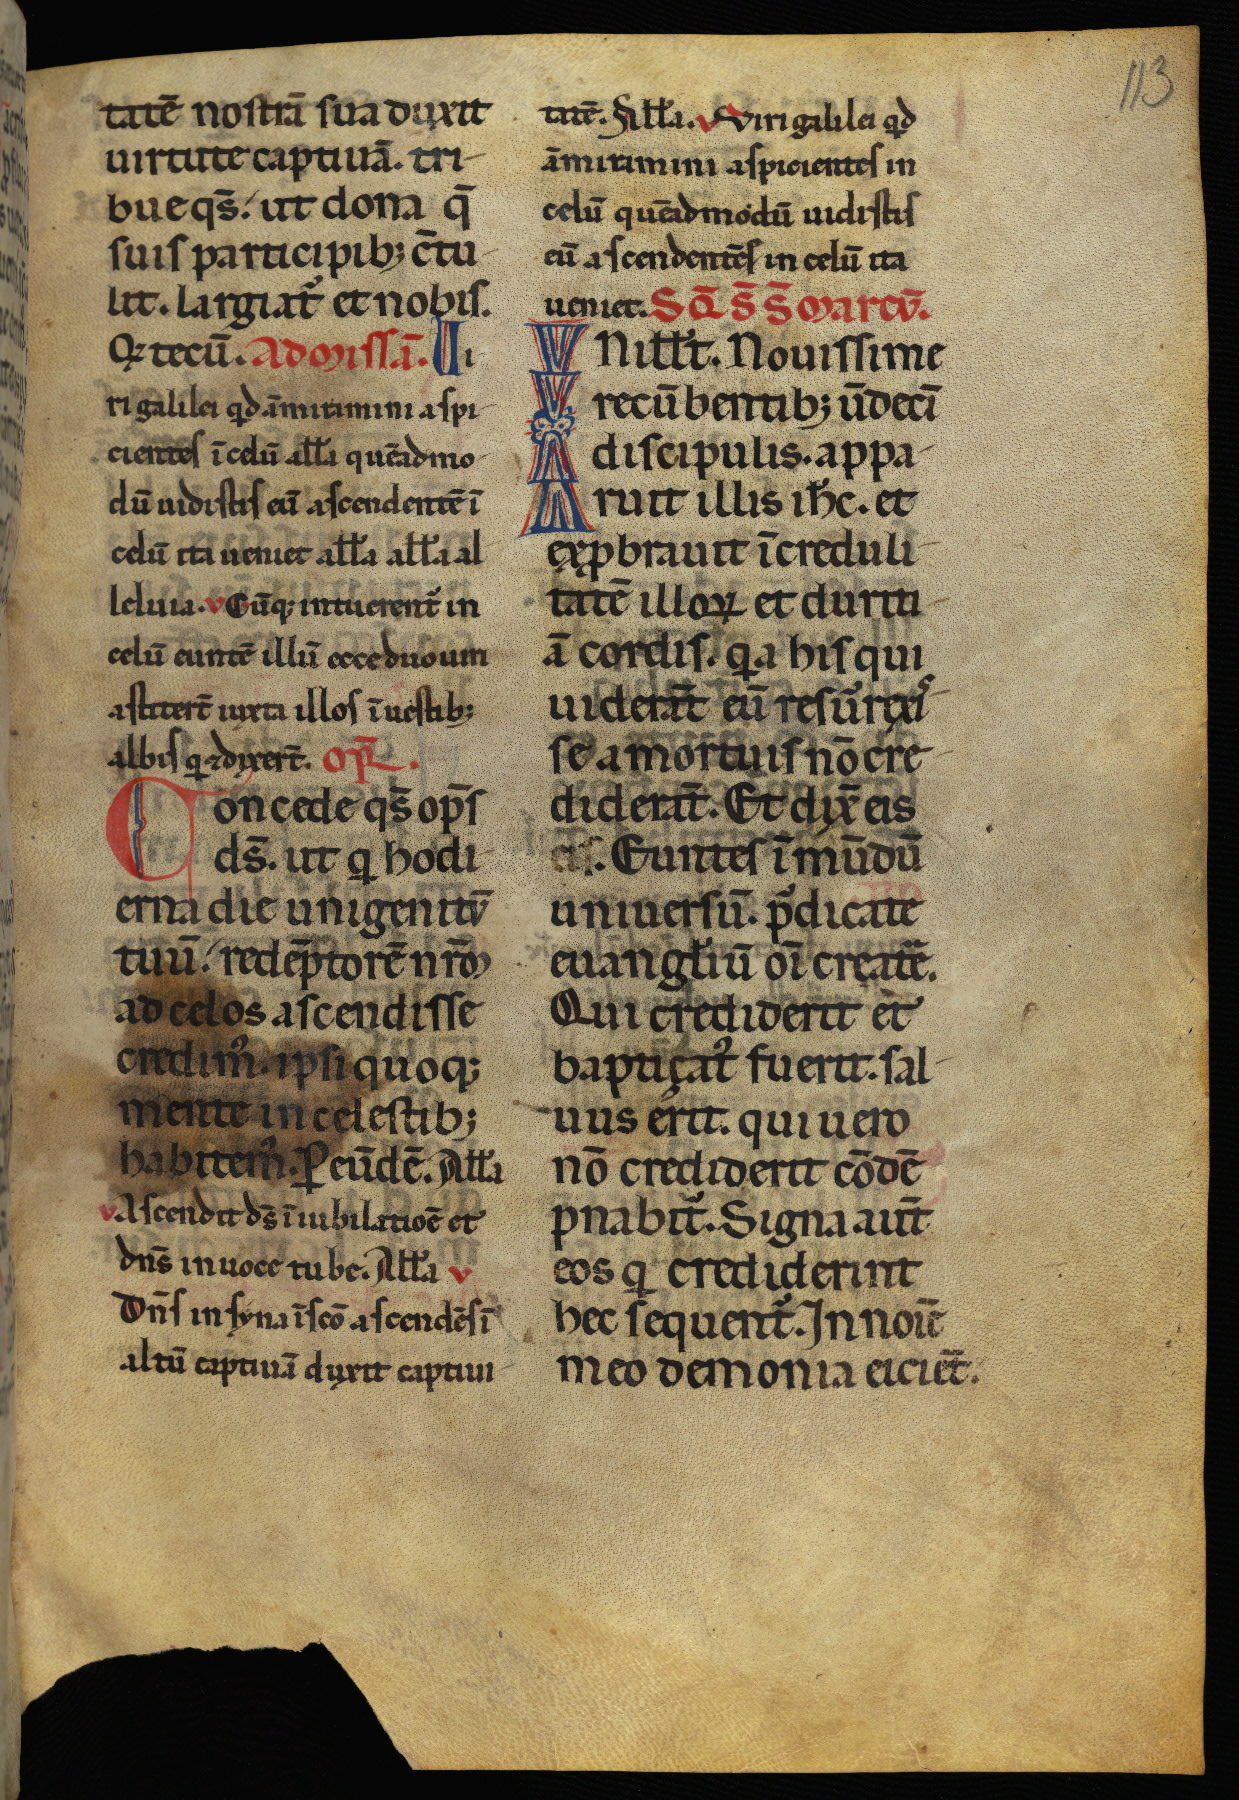 113
tatē nostrā sua duxit
uirtute captiuā. tri-
bue qs̄. ut dona q̄
suis participib; c̄tu-
lit. largiat᷑ et nobis.
Qꝛ tecū. Ad missā. Ui
ri galilei qd ām̄iramini aspi-
cientes ī celū all̄a quēadmo-
dū uidistis eū ascendentē ī
celū ita ueniet all̄a all̄a al
leluia. v Cūq; intuerent᷑ in
celū euntē illū ecce duo uiri
astitert̄ iuxta illos ī uestib;
albis q̇ ⁊ dixert̄. Or̄.
Concede qs̄ op̄s
ds̄. ut q̇ hodi-
erna die unigenitū
tuū. redēptorē nr̄m
ad celos ascendisse
credim᷒. ipsi quoq;
mente in celestib;
habitem᷒. P eūdē. All̄a
v Ascendit ds̄ ī iubilatiōe et
dn̄s in uoce tube. All̄a v
Dn̄s in syna ī sc̄o ascendēs ī
altū captiuā duxit captiui-
tatē. All̄a. v Viri galilei qd
ām̄iramini aspicientes in
celū quēadmodū uidistis
eū ascendentēs in celū ita
ueniet. Sꝗ̄ s̄ s̄ marcū.
IN ill̄t. Nouissime
recūbentib; ūdecī
discipulis. appa-
ruit illis ih̄c. et
exp̱brauit īcreduli-
tatē illoꝝ et duriti-
ā cordis. q̇a his qui
uiderāt eū resūrexis
se a mortuis nō cre-
diderāt. Et dix̄ eis
eis. Euntes ī mūdū
uniuersū. p̄dicate
euangl̄iū oī creatē.
Qui crediderit et
baptiçat᷒ fuerit. sal-
uus erit. qui uero
nō crediderit cōdē
pnabit᷑. Signa aut̄
eos q̇ crediderint
hec sequent᷑. In noīe
meo demonia eiciēt.